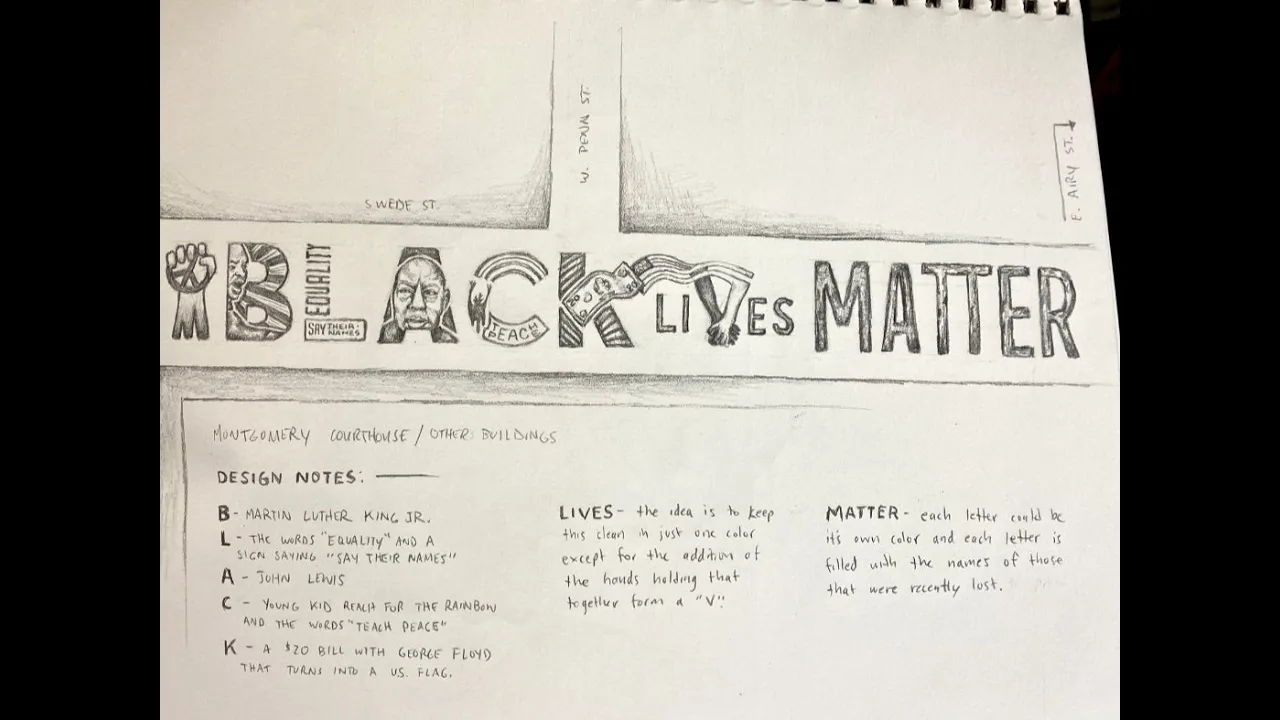 W. PENN ST.
E. AIRY ST.
SWEDE ST.
BLACK LIVES MATTER
EQUALITY
SAY THEIR NAMES
TEACH PEACE
20
MONTGOMERY COURTHOUSE / OTHER BUILDINGS
DESIGN NOTES:
B - MARTIN LUTHER KING JR.
L - THE WORDS "EQUALITY" AND A
SIGN SAYING "SAY THEIR NAMES"
A - JOHN LEWIS
C - YOUNG KID REACH FOR THE RAINBOW
AND THE WORDS "TEACH PEACE"
K - A $20 BILL WITH GEORGE FLOYD
THAT TURNS INTO A U.S. FLAG.
LIVES - the idea is to keep
this clean in just one color
except for the addition of
the hands holding that
together form a "V".
MATTER - each letter could be
it's own color and each letter is
filled with the names of those
that were recently lost.